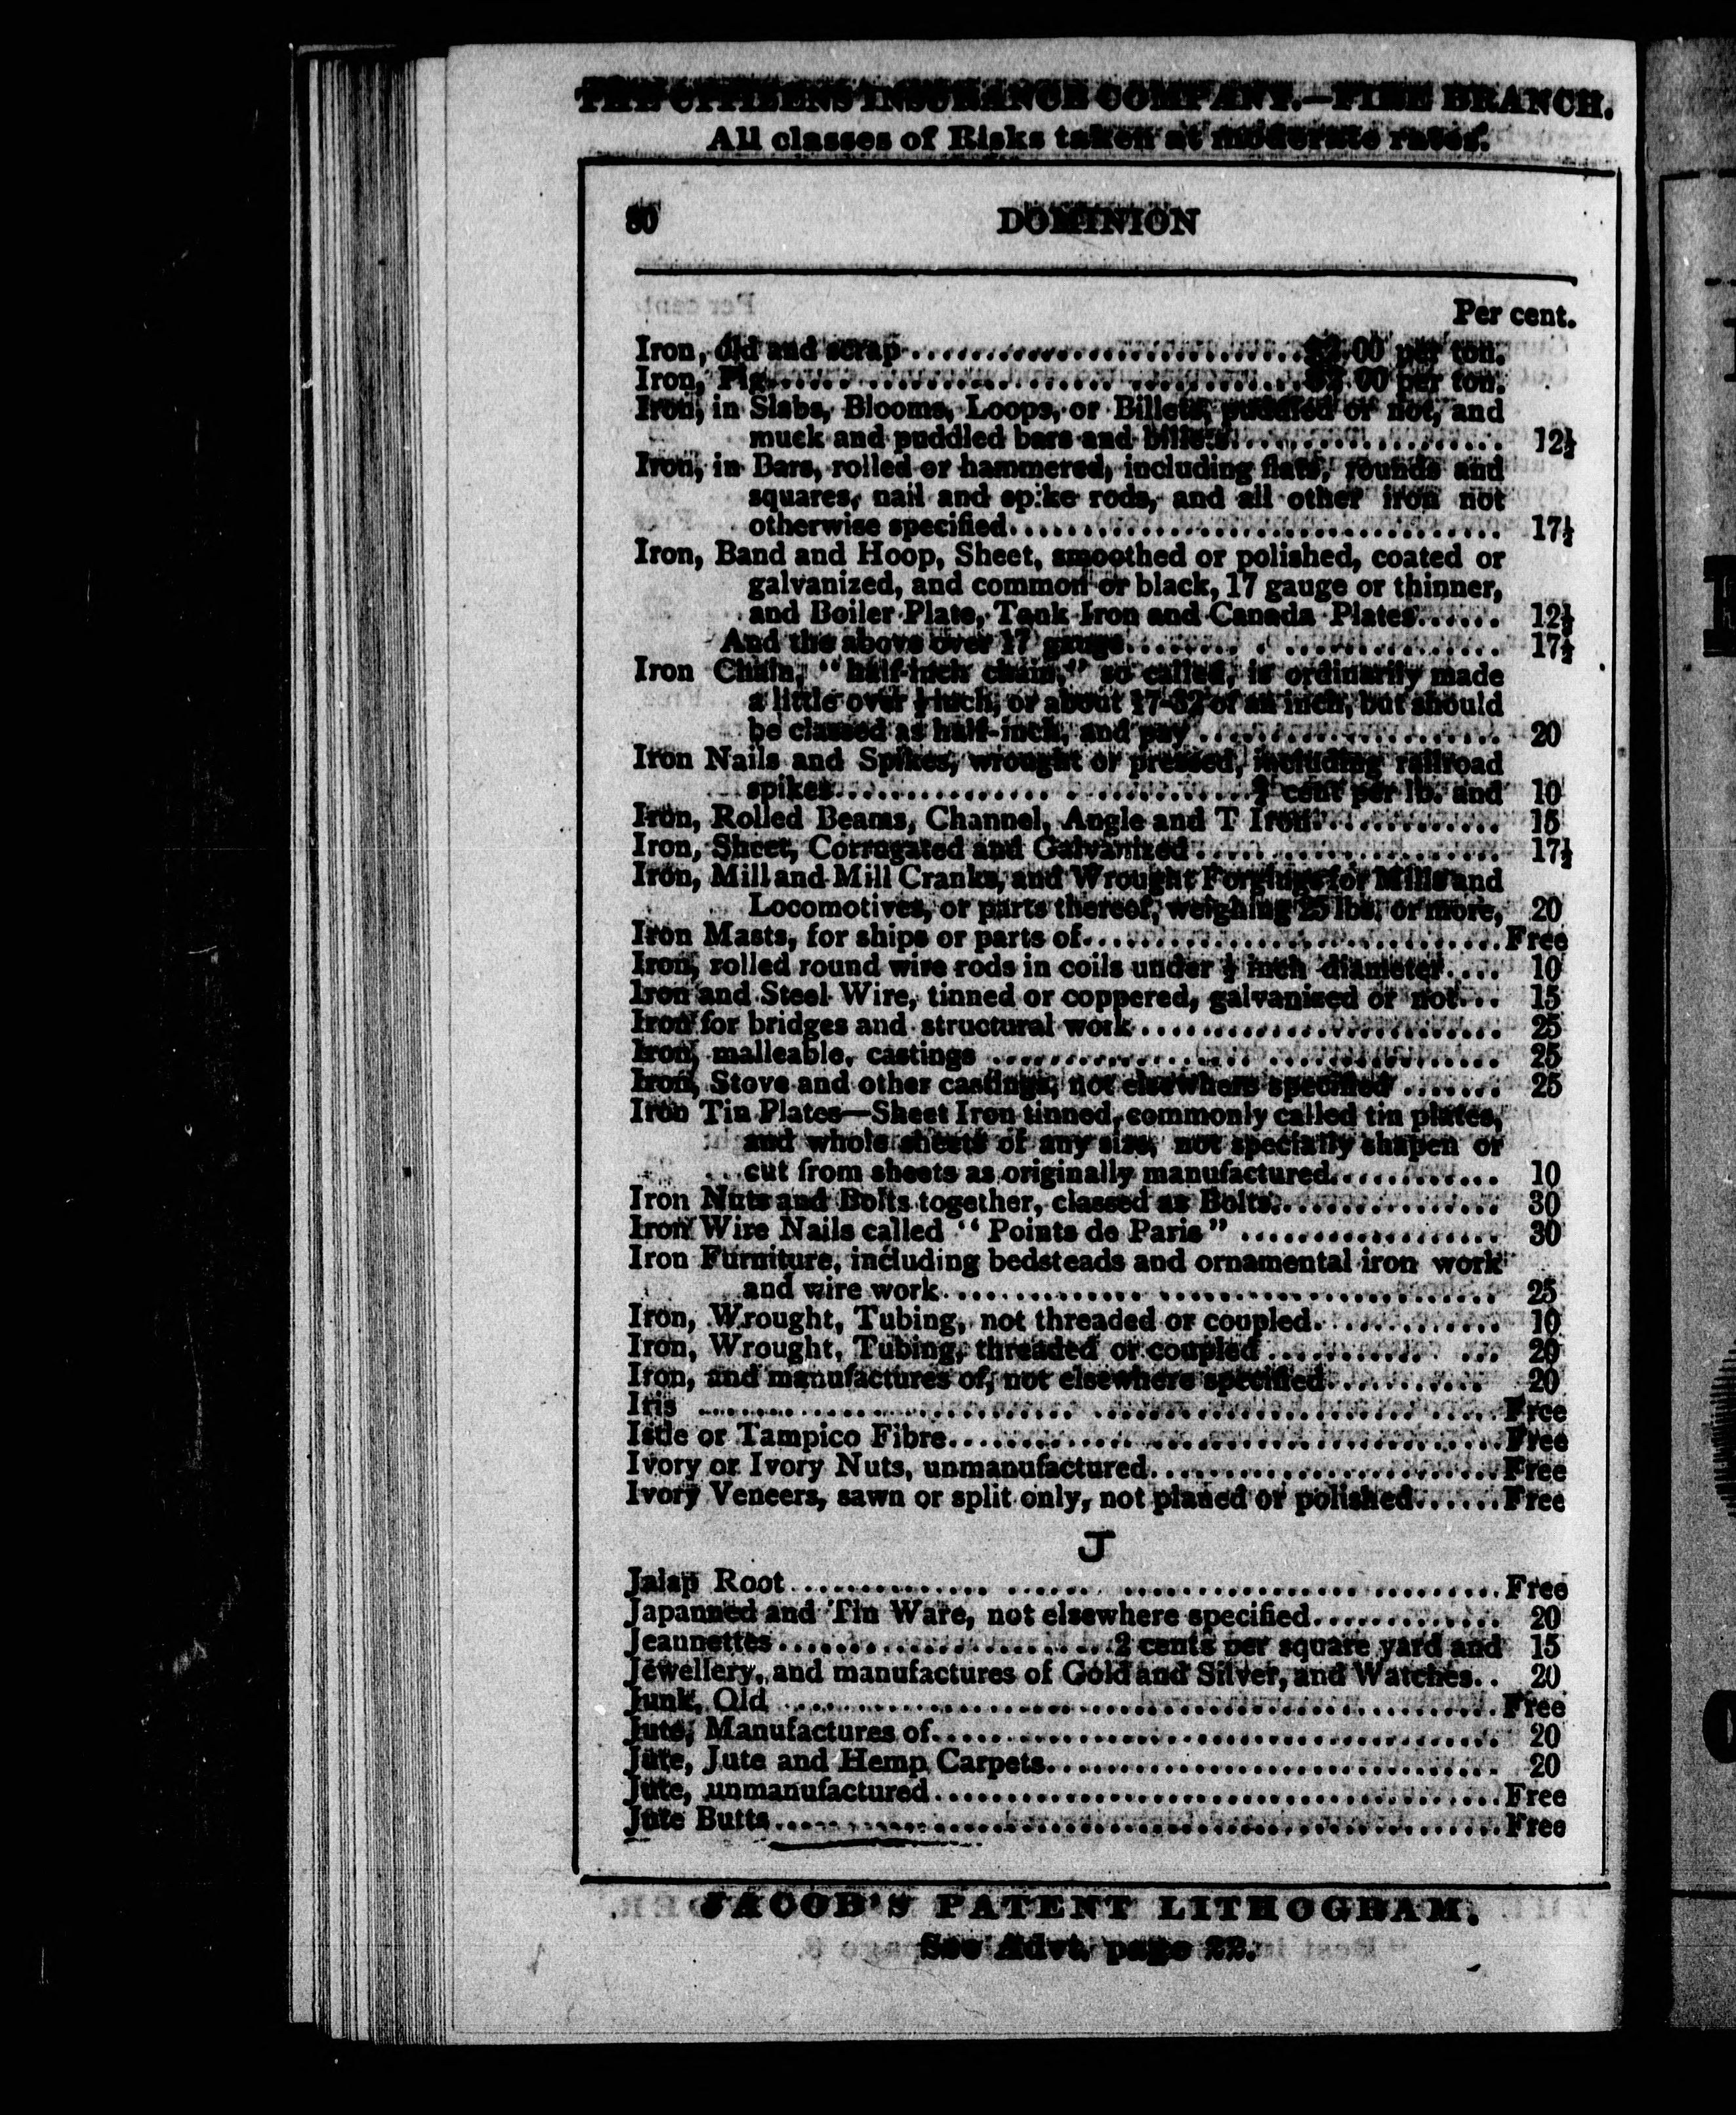 THE CITIZENS INSURANCE COMPANY.—FIRE BRANCH.
All classes of Risks taken at moderate rates.
80 DOMINION
Per cent.
Iron, old and scrap..............................$2.00 per ton.
Iron, Pig..............................$2.00 per ton.
Iron, in Slabs, Blooms, Loops, or Billets, puddled or not, and
muck and puddled bars and billets.................... 12½
Iron, in Bars, rolled or hammered, including flats, rounds and
squares, nail and spike rods, and all other iron not
otherwise specified.................................. 17½
Iron, Band and Hoop, Sheet, smoothed or polished, coated or
galvanized, and common or black, 17 gauge or thinner,
and Boiler Plate, Tank Iron and Canada Plates...... 12½
And the above over 17 gauge......................... 17½
Iron Chain, "half-inch chain," so called, is ordinarily made
a little over ½ inch, or about 17-32 of an inch, but should
be classed as half-inch, and pay..................... 20
Iron Nails and Spikes, wrought or pressed, including railroad
spikes.............................. cent per lb. and 10
Iron, Rolled Beams, Channel, Angle and T Iron............. 15
Iron, Sheet, Corrugated and Galvanized..................... 17½
Iron, Mill and Mill Cranks, and Wrought Forgings for Mills and
Locomotives, or parts thereof, weighing 25 lbs. or more, 20
Iron Masts, for ships or parts of.............................Free
Iron, rolled round wire rods in coils under ½ inch diameter.... 10
Iron and Steel Wire, tinned or coppered, galvanized or not... 15
Iron for bridges and structural work......................... 25
Iron, malleable, castings ................................... 25
Iron, Stove and other castings, not elsewhere specified ....... 25
Iron Tin Plates—Sheet Iron tinned, commonly called tin plates,
and whole sheets of any size, not specially shapen or
cut from sheets as originally manufactured............ 10
Iron Nuts and Bolts together, classed as Bolts................ 30
Iron Wire Nails called "Points de Paris" .................. 30
Iron Furniture, including bedsteads and ornamental iron work
and wire work...................................... 25
Iron, Wrought, Tubing, not threaded or coupled............. 10
Iron, Wrought, Tubing, threaded or coupled ........... ... 20
Iron, and manufactures of, not elsewhere specified........... 20
Iris .......................................................Free
Istle or Tampico Fibre......................................Free
Ivory or Ivory Nuts, unmanufactured........................Free
Ivory Veneers, sawn or split only, not planed or polished......Free
J
Jalap Root..................................................Free
Japanned and Tin Ware, not elsewhere specified............. 20
Jeannettes.......................2 cents per square yard and 15
Jewellery, and manufactures of Gold and Silver, and Watches.. 20
Junk, Old ..................................................Free
Jute, Manufactures of....................................... 20
Jute, Jute and Hemp Carpets............................... 20
Jute, unmanufactured.......................................Free
Jute Butts..................................................Free
JACOB'S PATENT LITHOGRAM.
See Advt. page 22.